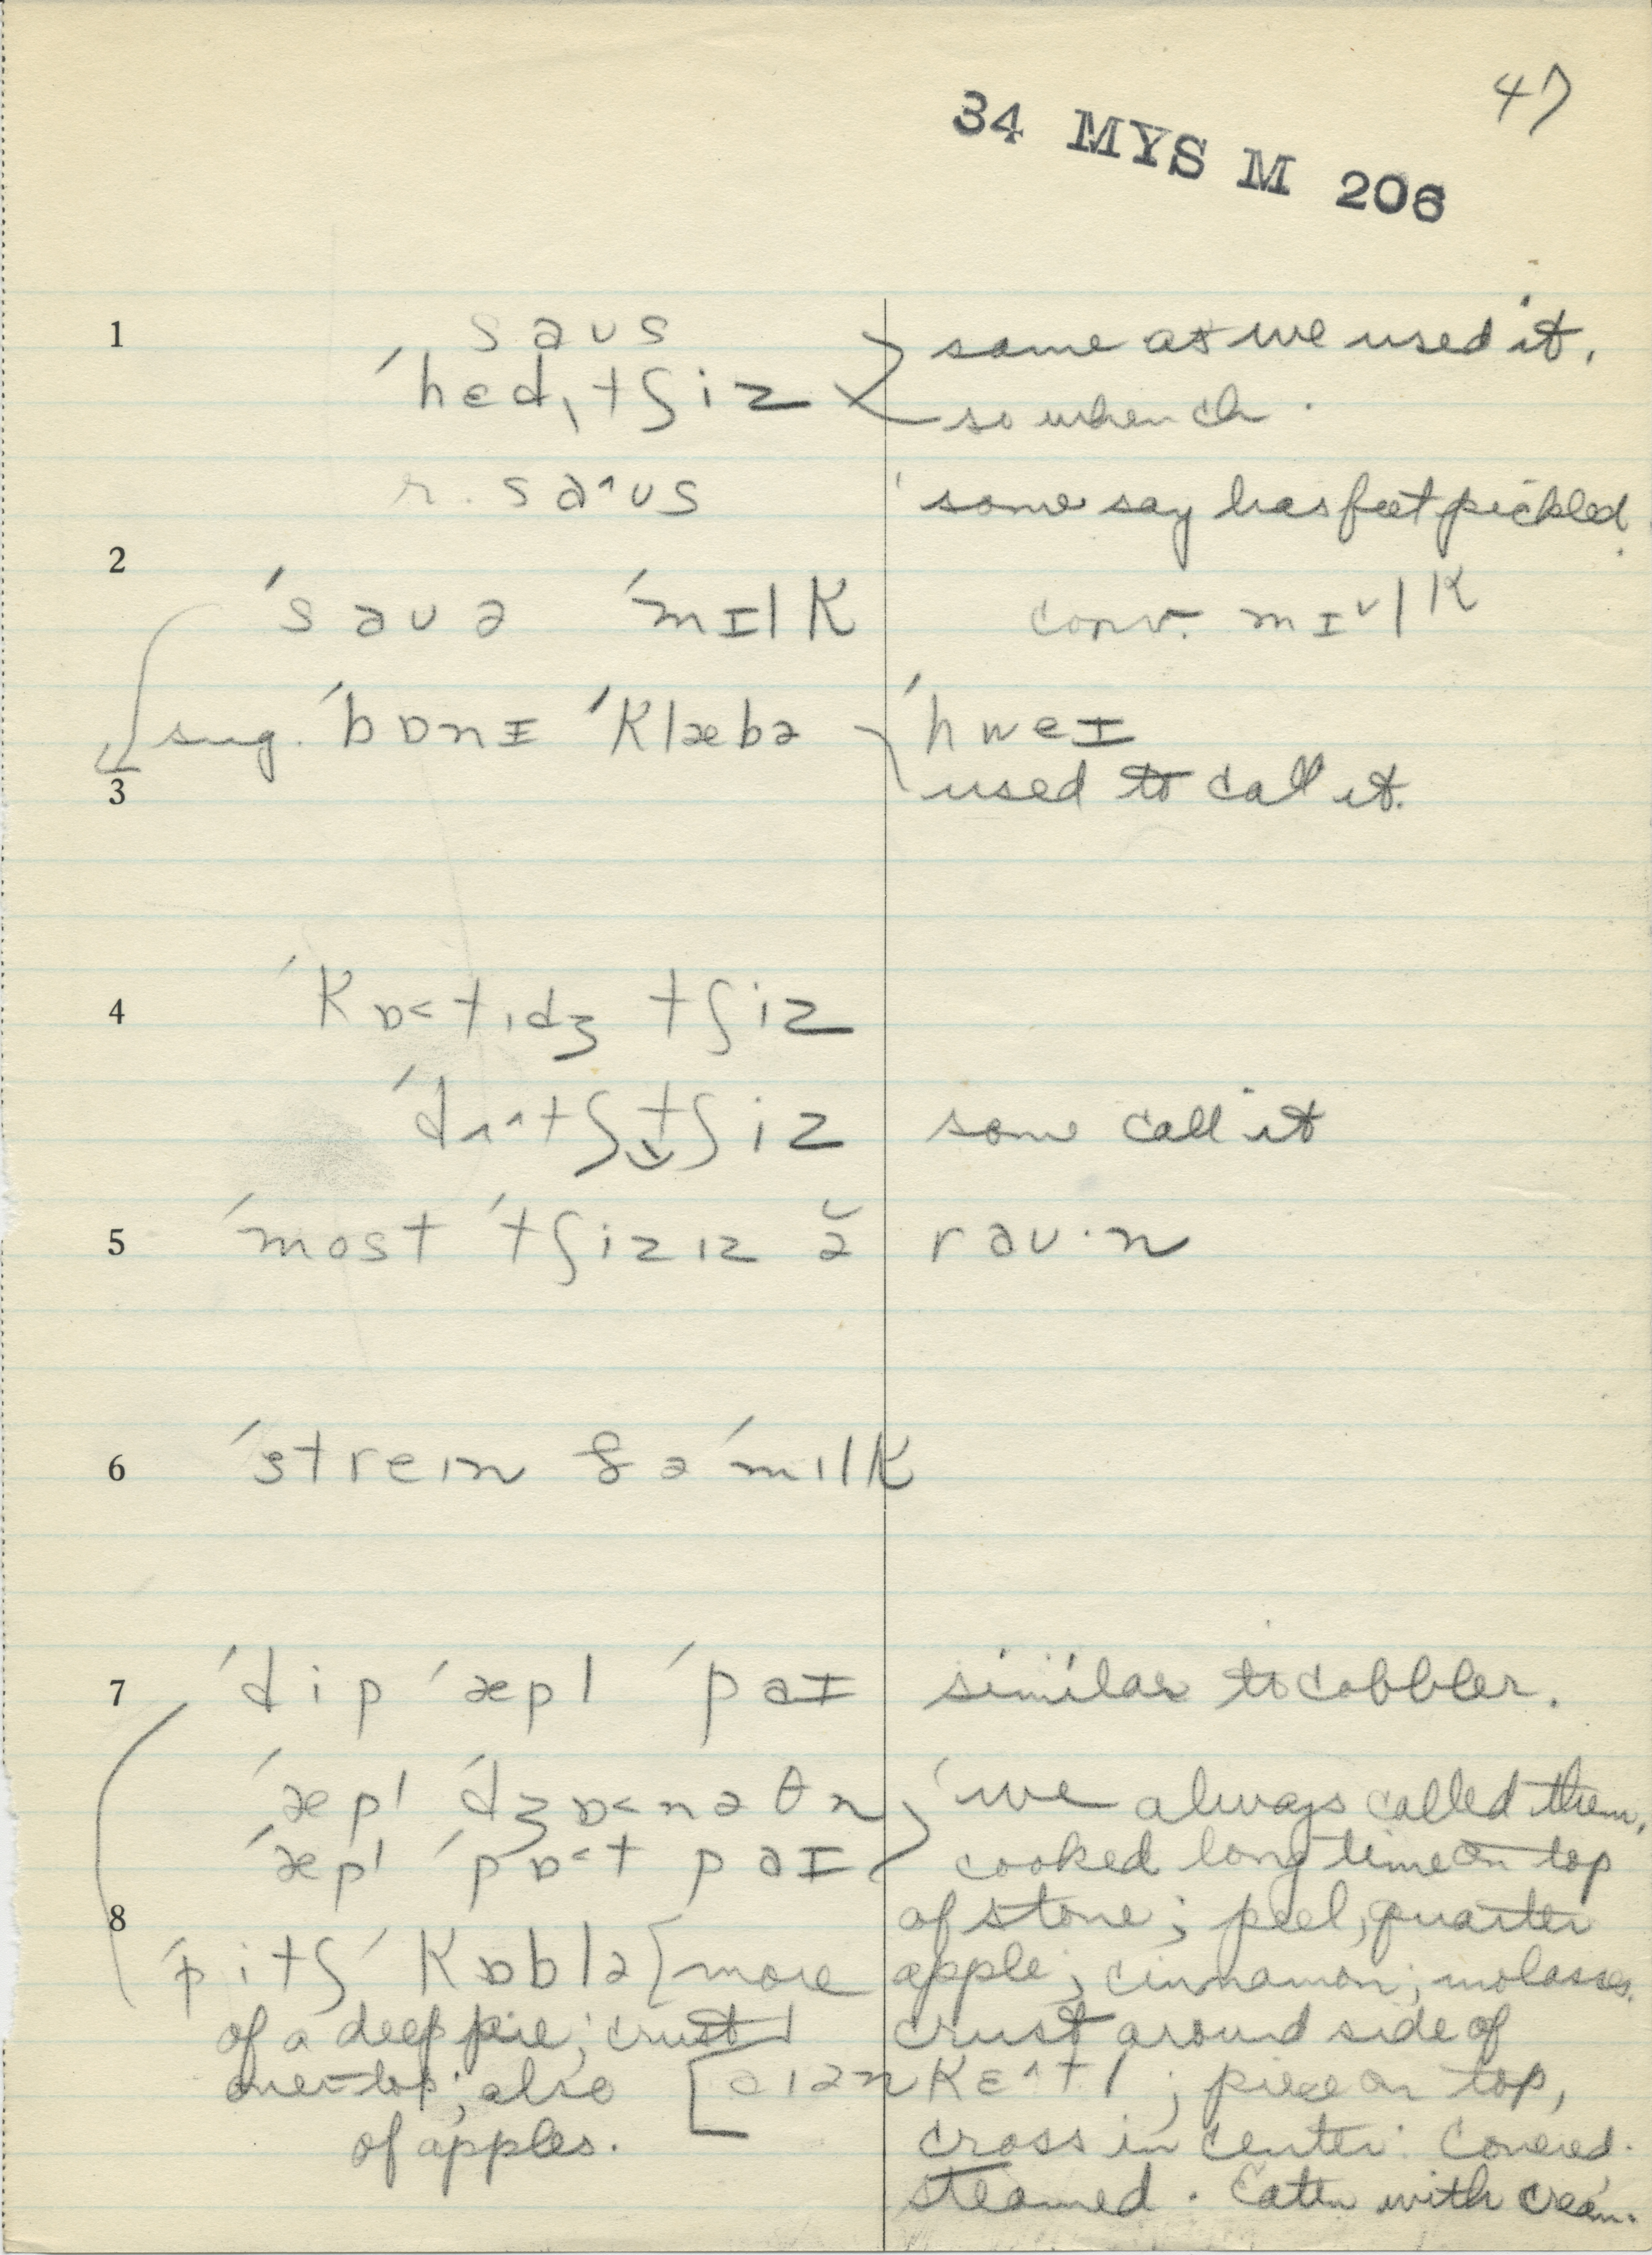 47
34 MYS M 206
1 saʊs same as we used it.
ˈhedˌtʃiz so when ch.
r. sa˄ʊs ' some say has feet pickled.
2
ˈsaʊə ˈmɪlK conv. mɪ˅lK
sug. ˈbɒnɪ ˈKlæbə ˈhweɪ
3 used to call it.
4 ˈKɒ˂tˌɪdʒ tʃiz
ˈdʌ˄tʃ tʃiz some call it
5 ˈmost ˈtʃizɪz ə̆ raʊ·n
6 ˈstreɪn ðə ˈmɪlK
7 ˈdip ˈæpl ˈpaɪ similar to cobbler.
ˈæpl ˈdʒɒ˂nəθn 'we always called them.
ˈæpl ˈpɒ˂t paɪ cooked long time on top
8 of stone; peel, quarter
ˈpitʃ ˈKɒblə [more apple; cinnamon; molasses.
of a deep pie; crust crust around side of
over top; also [ aɪən Kɛ˄tl; piece on top,
of apples. cross in center. Covered.
steamed. Eaten with cream.